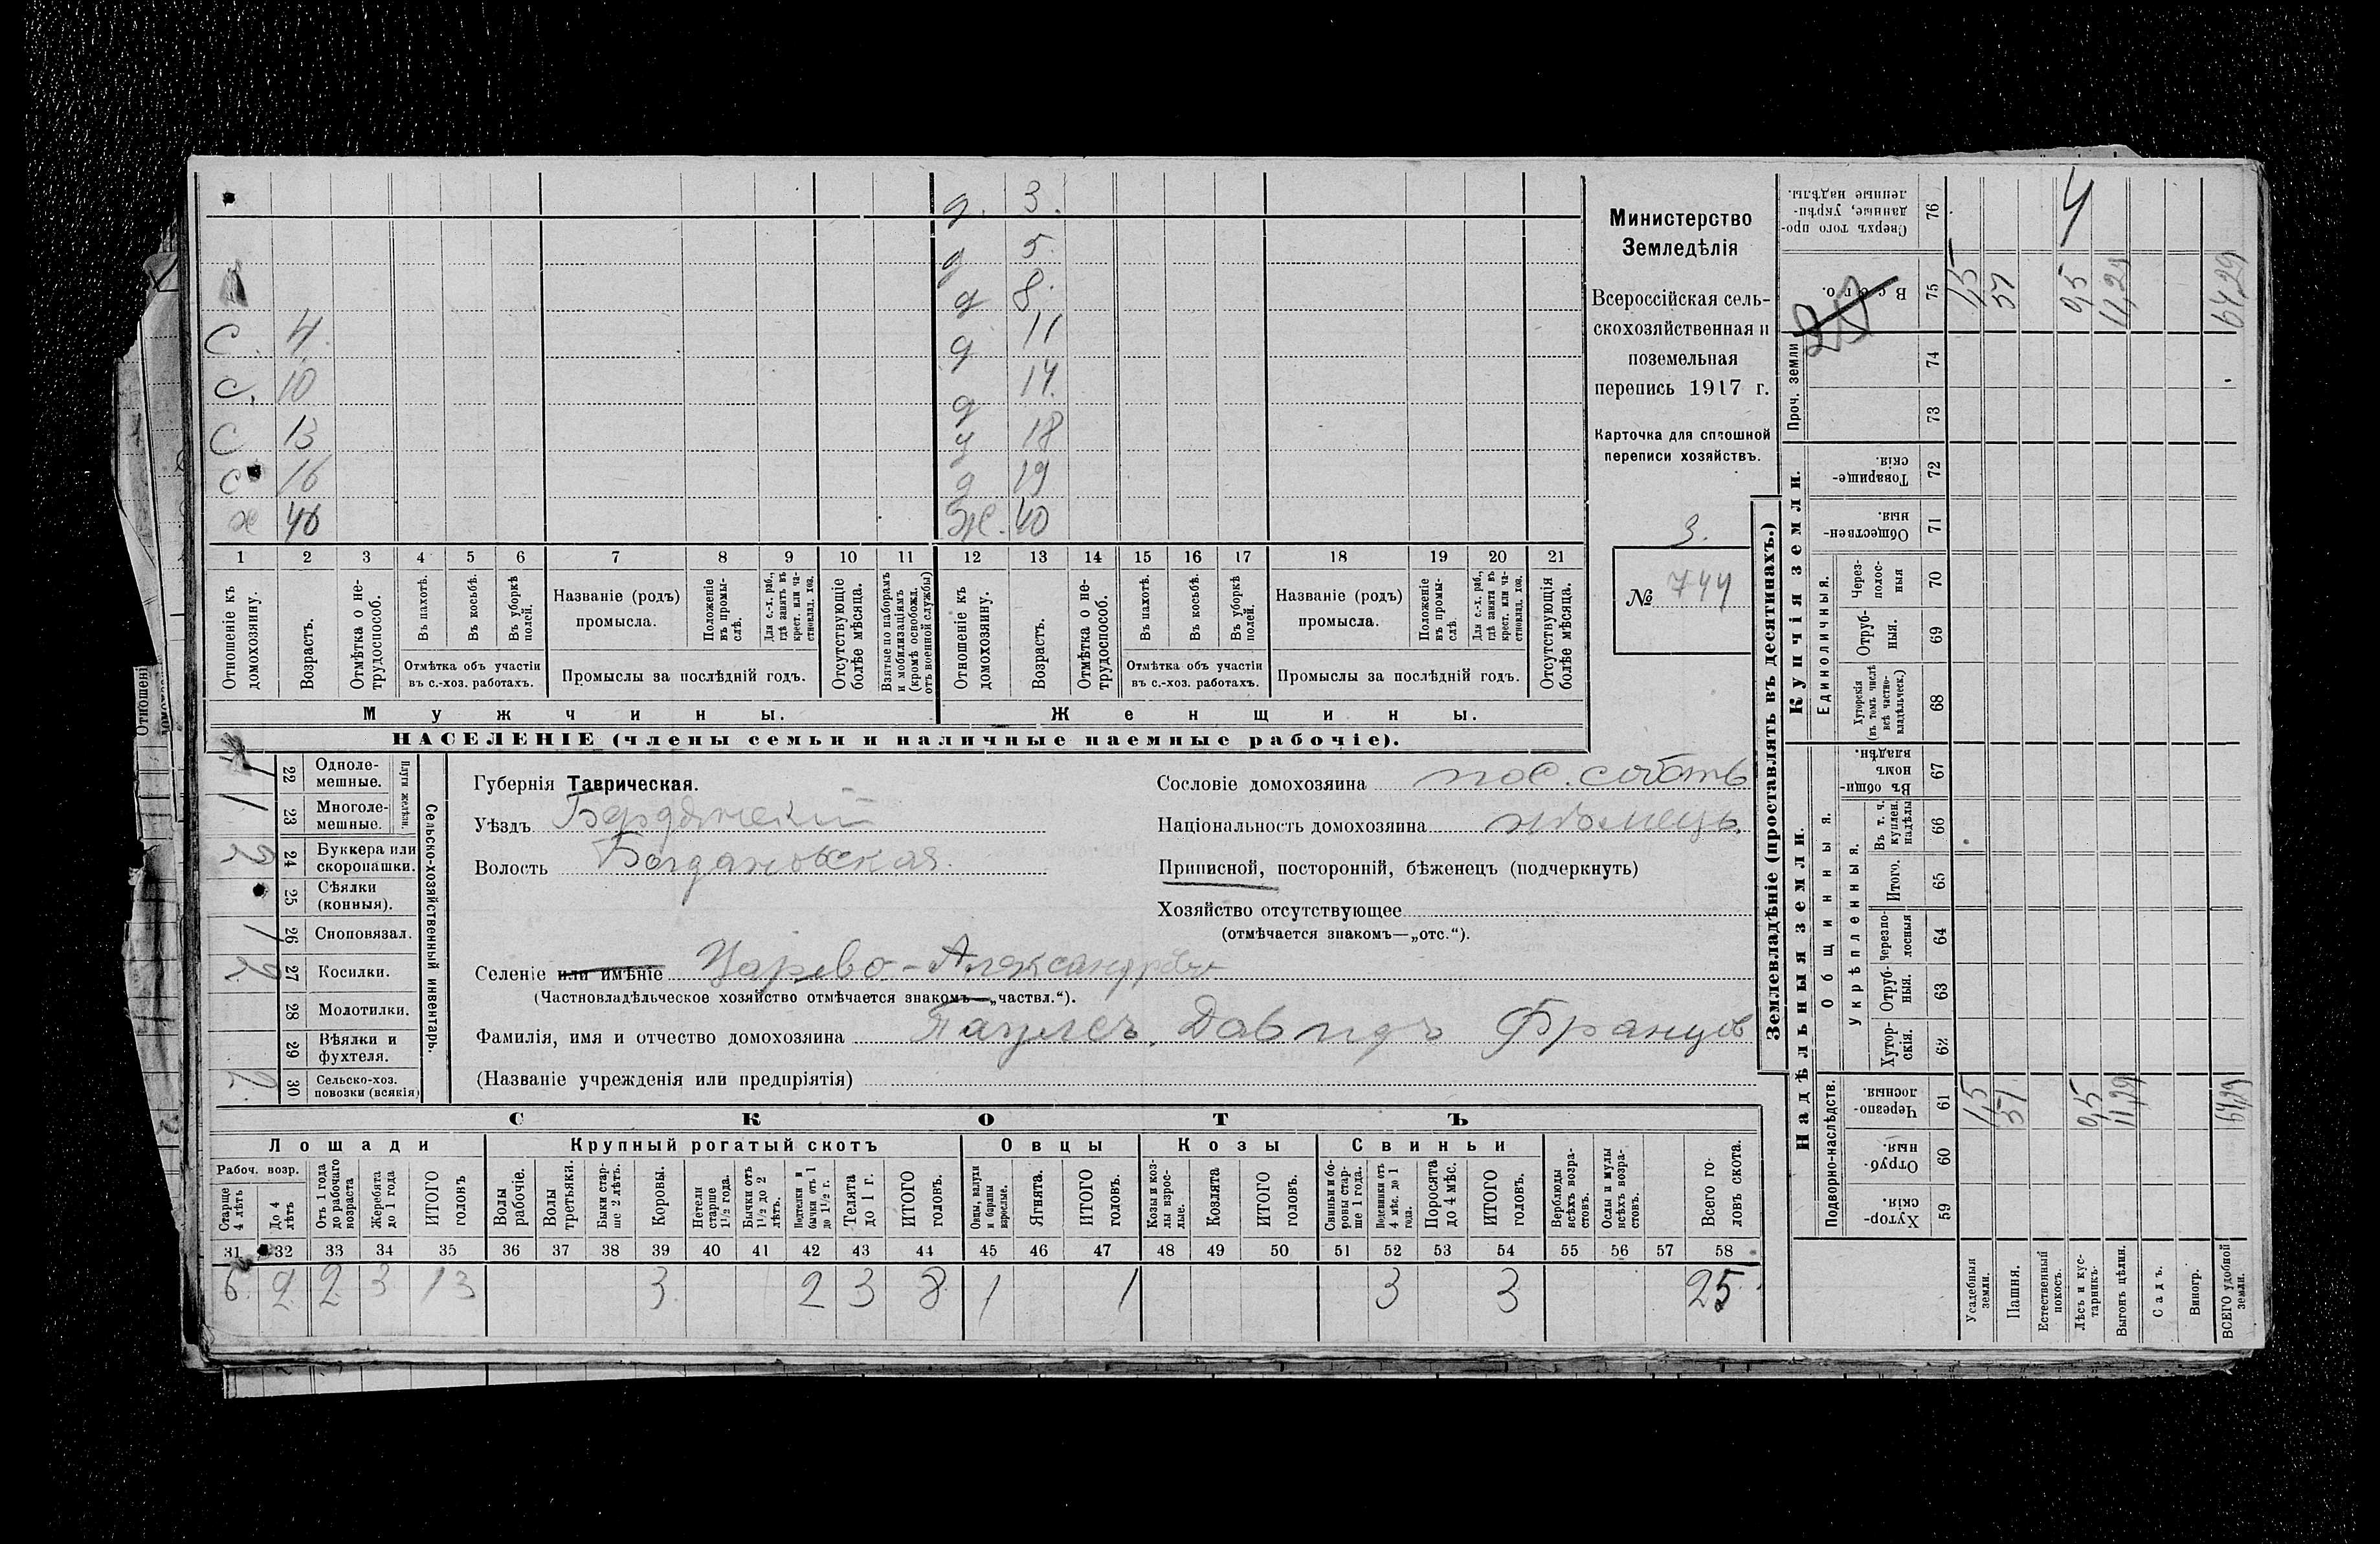 д. 3.
д 5.
д 8.
с. 4. д 11
с. 10 д 14.
с 13 д 18
с 16 д 19
х 46 Ж. 40
1 2 3 4 5 6 7 8 9 10 11 12 13 14 15 16 17 18 19 20 21
Отношеніе къ домохозяину.
Возрастъ.
Отмѣтка о не-трудоспособ.
Въ пахотѣ.
Въ косьбѣ.
Въ уборкѣ полей.
Отмѣтка объ участіи
въ с.-хоз. работахъ.
Названіе (родъ)
промысла.
Положеніе въ промы-слѣ.
Для с.-х. раб., гдѣ занятъ въ крест. или ча-стновлад. хоз.
Промыслы за послѣдній годъ.
Отсутствующіе болѣе мѣсяца.
Взятые по наборамъ и мобилизаціямъ (кромѣ освобожд. отъ военной службы)
Отношеніе къ домохозяину.
Возрастъ.
Отмѣтка о не-трудоспособ.
Въ пахотѣ.
Въ косьбѣ.
Въ уборкѣ полей.
Отмѣтка объ участіи
въ с.-хоз. работахъ.
Названіе (родъ)
промысла.
Положеніе въ промы-слѣ
Для с.-х. раб., гдѣ занята въ крест. или ча-стновлад. хоз.
Промыслы за послѣдній годъ.
Отсутствующія болѣе мѣсяца.
Мужчины.
Женщины.
НАСЕЛЕНІЕ (члены семьи и наличные наемные рабочіе).
Министерство
Земледѣлія
Всероссійская сель-
скохозяйственная и
поземельная
перепись 1917 г.
Карточка для сплошной
переписи хозяйствъ.
3.
№ 744
1 22 Одноле-мешные.
1 23 Многоле-мешные.
Плуги желѣзн.
24 Буккера или скоропашки.
25 Сѣялки (конныя).
1 26 Сноповязал.
2 27 Косилки.
28 Молотилки.
29 Вѣялки и фухтеля.
2 30 Сельско-хоз. повозки (всякія)
Сельско-хозяйственный инвентарь.
Губернія Таврическая.
Уѣздъ Бердянскій
Волость Богдановская.
Сословіе домохозяина пос. собств
Національность домохозяина нѣмецъ.
Приписной, посторонній, бѣженецъ (подчеркнуть)
Хозяйство отсутствующее
(отмѣчается знакомъ—„отс.“).
Селеніе или имѣніе Царево-Александровка
(Частновладѣльческое хозяйство отмѣчается знакомъ—„частвл.“).
Фамилія, имя и отчество домохозяина Паулсъ, Давидъ Францов
(Названіе учрежденія или предпріятія)
СКОТЪ
Лошади Крупный рогатый скотъ Овцы Козы Свиньи
Рабоч. возр.
Старше 4 лѣтъ
До 4 лѣтъ
Отъ 1 года до рабочаго возраста
Жеребята до 1 года
ИТОГО головъ
Волы рабочіе.
Волы третьяки.
Быки стар-ше 2 лѣтъ.
Коровы.
Нетели старше 1½ года.
Бычки отъ 1½ до 2 лѣтъ.
Подтелки и бычки отъ 1 до 1½ г.
Телята до 1 г.
ИТОГО головъ.
Овцы, валухи и бараны взрослые.
Ягнята.
ИТОГО головъ.
Козы и коз-лы взрос-лые.
Козлята
ИТОГО головъ.
Свиньи и бо-ровы стар-ше 1 года.
Подсвинки отъ 4 мѣс. до 1 года.
Поросята до 4 мѣс.
ИТОГО головъ.
Верблюды всѣхъ возра-стовъ.
Ослы и мулы всѣхъ возра-стовъ.
Всего го-ловъ скота.
31 32 33 34 35 36 37 38 39 40 41 42 43 44 45 46 47 48 49 50 51 52 53 54 55 56 57 58
6. 2. 2. 3 13 3. 2 3 8 1 1 3 3 25
Землевладѣніе (проставлять въ десятинахъ.)
Надѣльныя земли.
Купчія земли.
Проч. земли
Подворно-наслѣдств.
Общинныя.
Укрѣпленныя.
Единоличныя.
Хутор-скія. 59
Отруб-ныя. 60
Черезпо-лосныя. 61
Хутор-скія. 62
Отруб-ныя. 63
Черезпо-лосныя 64
Итого. 65
Въ т. ч. куплен. надѣлы 66
Въ общин-номъ владѣн. 67
Хуторскія (въ томъ числѣ всѣ частно-владѣльческ.) 68
Отруб-ныя. 69
Через-полос-ныя 70
Обществен-ныя. 71
Товарище-скія. 72
73
74
Всего. 75
Сверхъ того про-данные, укрѣп-ленные надѣлы. 76
Усадебныя земли. 1,5 1,5
Пашня. 51 51
Естественный покосъ.
Лѣсъ и кус-тарникъ. 0,5 0,5 4
Выгонъ цѣлин. 11,29 11,29
Садъ.
Виногр.
ВСЕГО удобной земли. 64,29 64,29